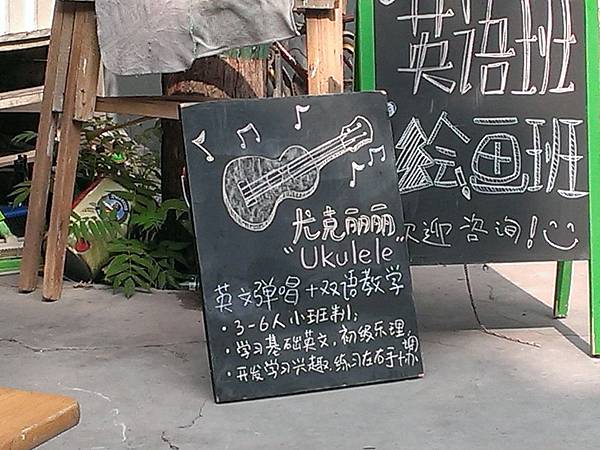 英语班
绘画班
欢迎咨询!
尤克丽丽
"Ukulele"
英文弹唱+双语教学
·3-6人小班制;
·学习基础英文,初级乐理,
·开发学习兴趣.练习左右手协